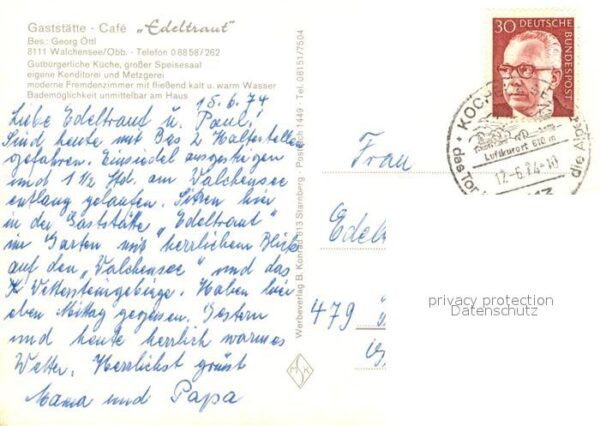 Gaststätte - Café „Edeltraut"
Bes.: Georg Öttl
8111 Walchensee/Obb. - Telefon 0 88 58/262
Gutbürgerliche Küche, großer Speisesaal
eigene Konditorei und Metzgerei
moderne Fremdenzimmer mit fließend kalt u. warm Wasser
Bademöglichkeit unmittelbar am Haus
15.6.74
Liebe Edeltraud u. Paul!
Sind heute mit Bus 2 Haltestellen
gefahren. Einsiedel ausgestiegen
und 1 1/2 Std. am Walchensee
entlang gelaufen. Sitzen hier
in der Gaststätte "Edeltraut"
im Garten mit herrlichem Blick
auf den "Walchensee" und das
Wettersteingebirge. Haben hier
eben Mittag gegessen. Gestern
und heute herrlich warmes
Wetter. Herzlichst grüßt
Mama und Papa
Werbeverlag B. Konrad 813 Starnberg - Postfach 1449 - Tel. 08151/7504
30 DEUTSCHE
BUNDESPOST
KOCHEL
Luftkurort 610 m
das Tor
die Alp
17.-6.74-10
Frau
Edel
479
privacy protection
Datenschutz